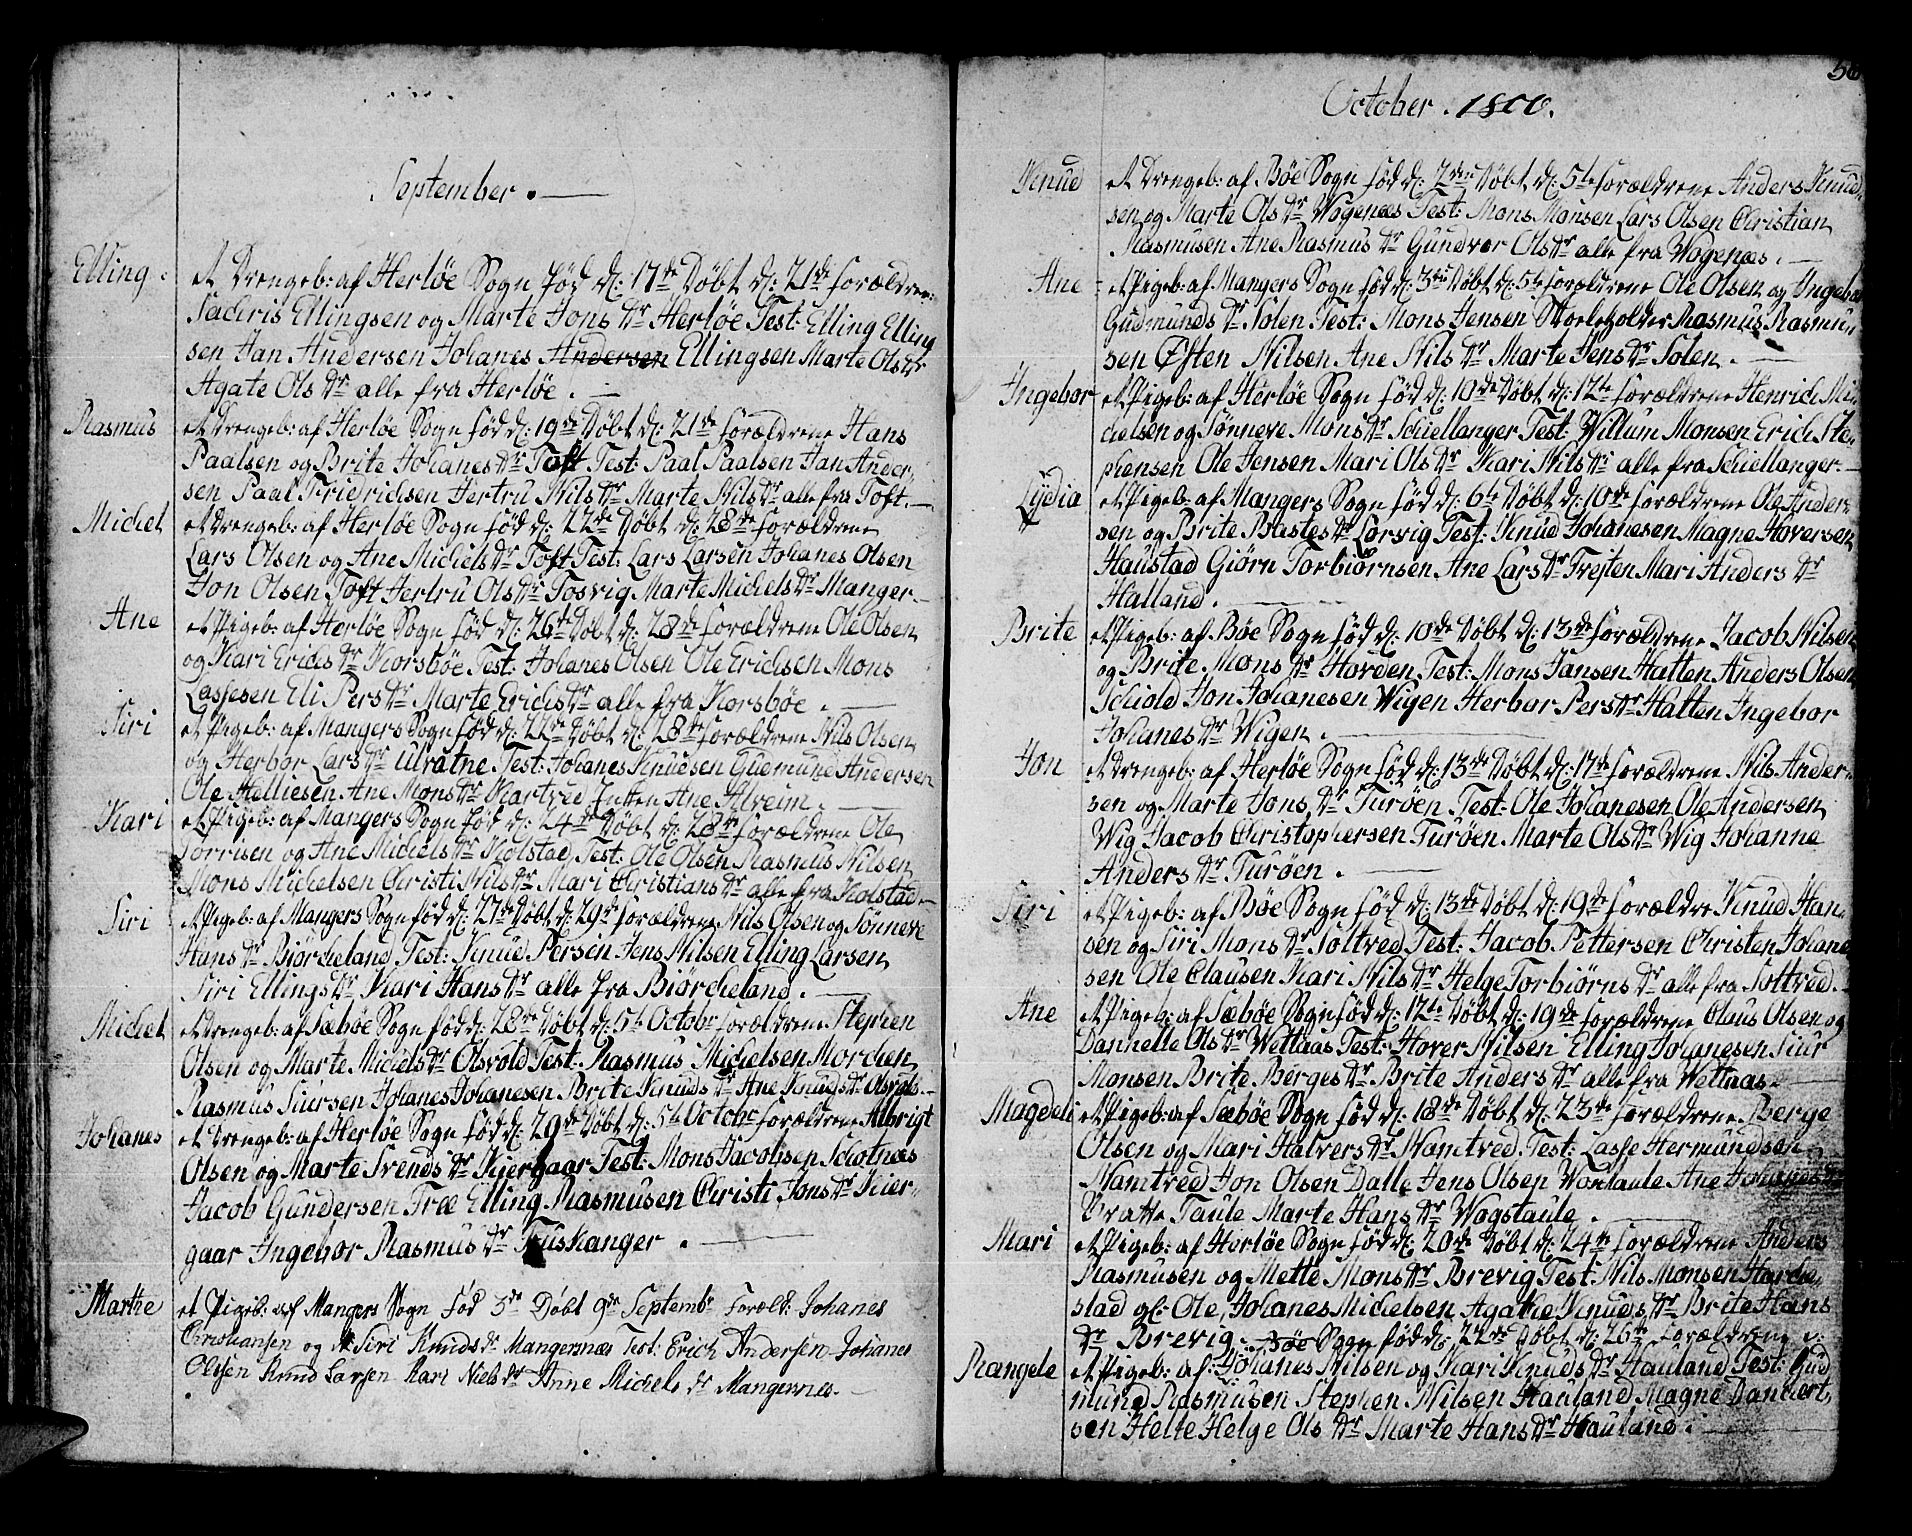 September. —
Elling. et Drengeb: af Herløe Sogn fød d: 17de Døbt d: 21de forældrene
Sachris Ellingsen og Marte Jons Dr Herløe Test: Elling Elling
sen Jan Andersen Johanes Andersen Ellingsen Marte Ols Dr
Agate Ols Dr alle fra Herløe. —
Rasmus et Drengeb: af Herløe Sogn fød d: 19de Døbt d: 21de forældrene Hans
Paalsen og Brite Johanes Dr Toft Test: Paal Paalsen Jan Ander-
sen Paal Fridrichsen Jertru Nils Dr Marte Nils Dr alle fra Toft. —
Michel et Drengeb: af Herløe Sogn fød d: 22de Døbt d: 28de forældrene
Lars Olsen og Ane Michels Dr Toft Test: Lars Larsen Johanes Olsen
Jon Olsen Toft Jertru Ols Dr Fosvig Marte Michels Dr Manger. —
Ane et Pigeb: af Herløe Sogn fød d: 26te Døbt d: 28de forældrene Ole Olsen
og Kari Erichs Dr Korsbøe Test: Johanes Olsen Ole Erichsen Mons
Lassesen Eli Pers Dr Marte Erichs Dr alle fra Korsbøe. —
Siri et Pigeb: af Mangers Sogn fød d: 22de Døbt d: 28de forældrene Nils Olsen
og Herbor Lars Dr Ulvatne Test: Johanes Knudsen Gudmund Andersen
Ole Helliesen Ane Mons Dr Ane Alveim. —
Kari et Pigeb: af Mangers Sogn fød d: 24de Døbt d: 28de forældrene Ole
Sorrisen og Ane Michels Dr Kolstad Test: Ole Olsen Rasmus Nilsen
Mons Michelsen Christi Nils Dr Mari Christians Dr alle fra Kolstad —
Siri et Pigeb: af Mangers Sogn fød d: 27de Døbt d: 29de forældrene Nils Olsen og Sønneve
Hans Dr Biørcheland Test: Knud Persen Jens Nilsen Elling Larsen
Siri Ellings Dr Kari Hans Dr alle fra Biørcheland. —
Michel et Drengeb: af Sæbøe Sogn fød d: 28de Døbt d: 5te Octobr forældrene Stephen
Olsen og Marte Michels Dr Olsvold Test: Rasmus Michelsen Morchen
Rasmus Siursen Johanes Johanesen Brite Knuds Dr Ane Knuds Dr
Johanes et Drengeb: af Herløe Sogn fød d: 29de Døbt d: 5te Octobr forældrene Albrigt
Olsen og Marte Svends Dr Kiergaar Test: Mons Jacobsen Schotnæs
Jacob Gundersen Træ Elling Rasmusen Christi Jons Dr Kier-
gaar Ingebor Rasmus Dr Tuskanger. —
Marthe et Pigeb: af Mangers Sogn fød 3de Døbt 9de Septembr Foræld: Johanes
Christiansen og Siri Knuds Dr Mangersnæs Test: Erich Andersen Johanes
Olsen Knud Larsen Kari Niels Dr Anne Michels Dr Mangernes. —
October. 1800.
Knud et Drengeb: af Bøe Sogn fød d: 2den Døbt d: 5te forældrene Anders Knud-
sen og Marte Ols Dr Wogenæs Test: Mons Monsen Lars Olsen Christian
Rasmusen Ane Rasmus Dr Gundvor Ols Dr alle fra Wogenæs. —
Ane et Pigeb: af Mangers Sogn fød d: 3die Døbt d: 5te forældrene Ole Olsen og Ingebor
Gudmunds Dr Solen Test: Mons Jensen Skoleholder Rasmus Rasmu-
sen Østen Nilsen Ane Nils Dr Marte Jens Dr Solen. —
Ingebor et Pigeb: af Herløe Sogn fød d: 10de Døbt d: 12te forældrene Henrich Mi-
chelsen og Sønneve Mons Dr Schiellanger Test: Willum Monsen Erich Ste-
phensen Ole Jensen Mari Ols Dr Kari Nils Dr alle fra Schiellanger. —
Lydia et Pigeb: af Mangers Sogn fød d: 6te Døbt d: 10de forældrene Ole Ander-
sen og Brite Bastes Dr Lorvig Test: Knud Johanesen Magne Hoversen
Haustad Giørn Torbiørnsen Ane Lars Dr Mari Anders Dr
Halland. —
Brite et Pigeb: af Bøe Sogn fød d: 10de Døbt d: 13de forældrene Jacob Nilsen
og Brite Mons Dr Hovden Test: Mons Jansen Hatten Anders Olsen
Schiold Jon Johanesen Wigen Herbor Pers Dr Hatten Ingebor
Johanes Dr Wigen. —
Jon et Drengeb: af Herløe Sogn fød d: 13de Døbt d: 17de forældrene Nils Ander-
sen og Marte Jons Dr Turøen Test: Ole Johanesen Ole Andersen
Wig Jacob Christophersen Turøen Marte Ols Dr Wig Johanne
Anders Dr Turøen. —
Siri et Pigeb: af Bøe Sogn fød d: 13de Døbt d: 19de forældre Knud Han-
sen og Siri Mons Dr Soltved Test: Jacob Pettersen Christen Johane
sen Ole Clausen Kari Nils Dr Helge Torbiørns Dr alle fra Soltved. —
Ane et Pigeb: af Sæbøe Sogn fød d: 12te Døbt d: 19de forældrene Claus Olsen og
Dannelle Ols Dr Wettaas Test: Hover Nilsen Elling Johanesen Siur
Monsen Brite Berges Dr Brite Anders Dr alle fra Wettaas. —
Magdeli et Pigeb: af Sæbøe Sogn fød d: 18de Døbt d: 23de forældrene Berge
Olsen og Mari Halvers Dr Namtved Test: Lasse Hermundsen
Namtved Jon Olsen Dalle Jens Olsen Ane Johanes Dr
Bratte Taule Marte Hans Dr Wogstaule. —
Mari et Pigeb: af Herløe Sogn fød d: 20de Døbt d: 24te forældrene Anders
Rasmusen og Mette Mons Dr Brevig Test: Nils Monsen
stad gl: Ole, Johanes Michelsen Agathe Knuds Dr Brite Hans
Dr Brevig. Bøe Sogn fød d: 22de Døbt d: 26te forældrene
Rangele et Pigeb: af: Johanes Nilsen og Kari Knuds Dr Hauland Test: Gud
mund Rasmusen Stephen Nilsen Hauland Magne Danchert
sen Helle Helge Ols Dr Marte Hans Dr Hauland. —